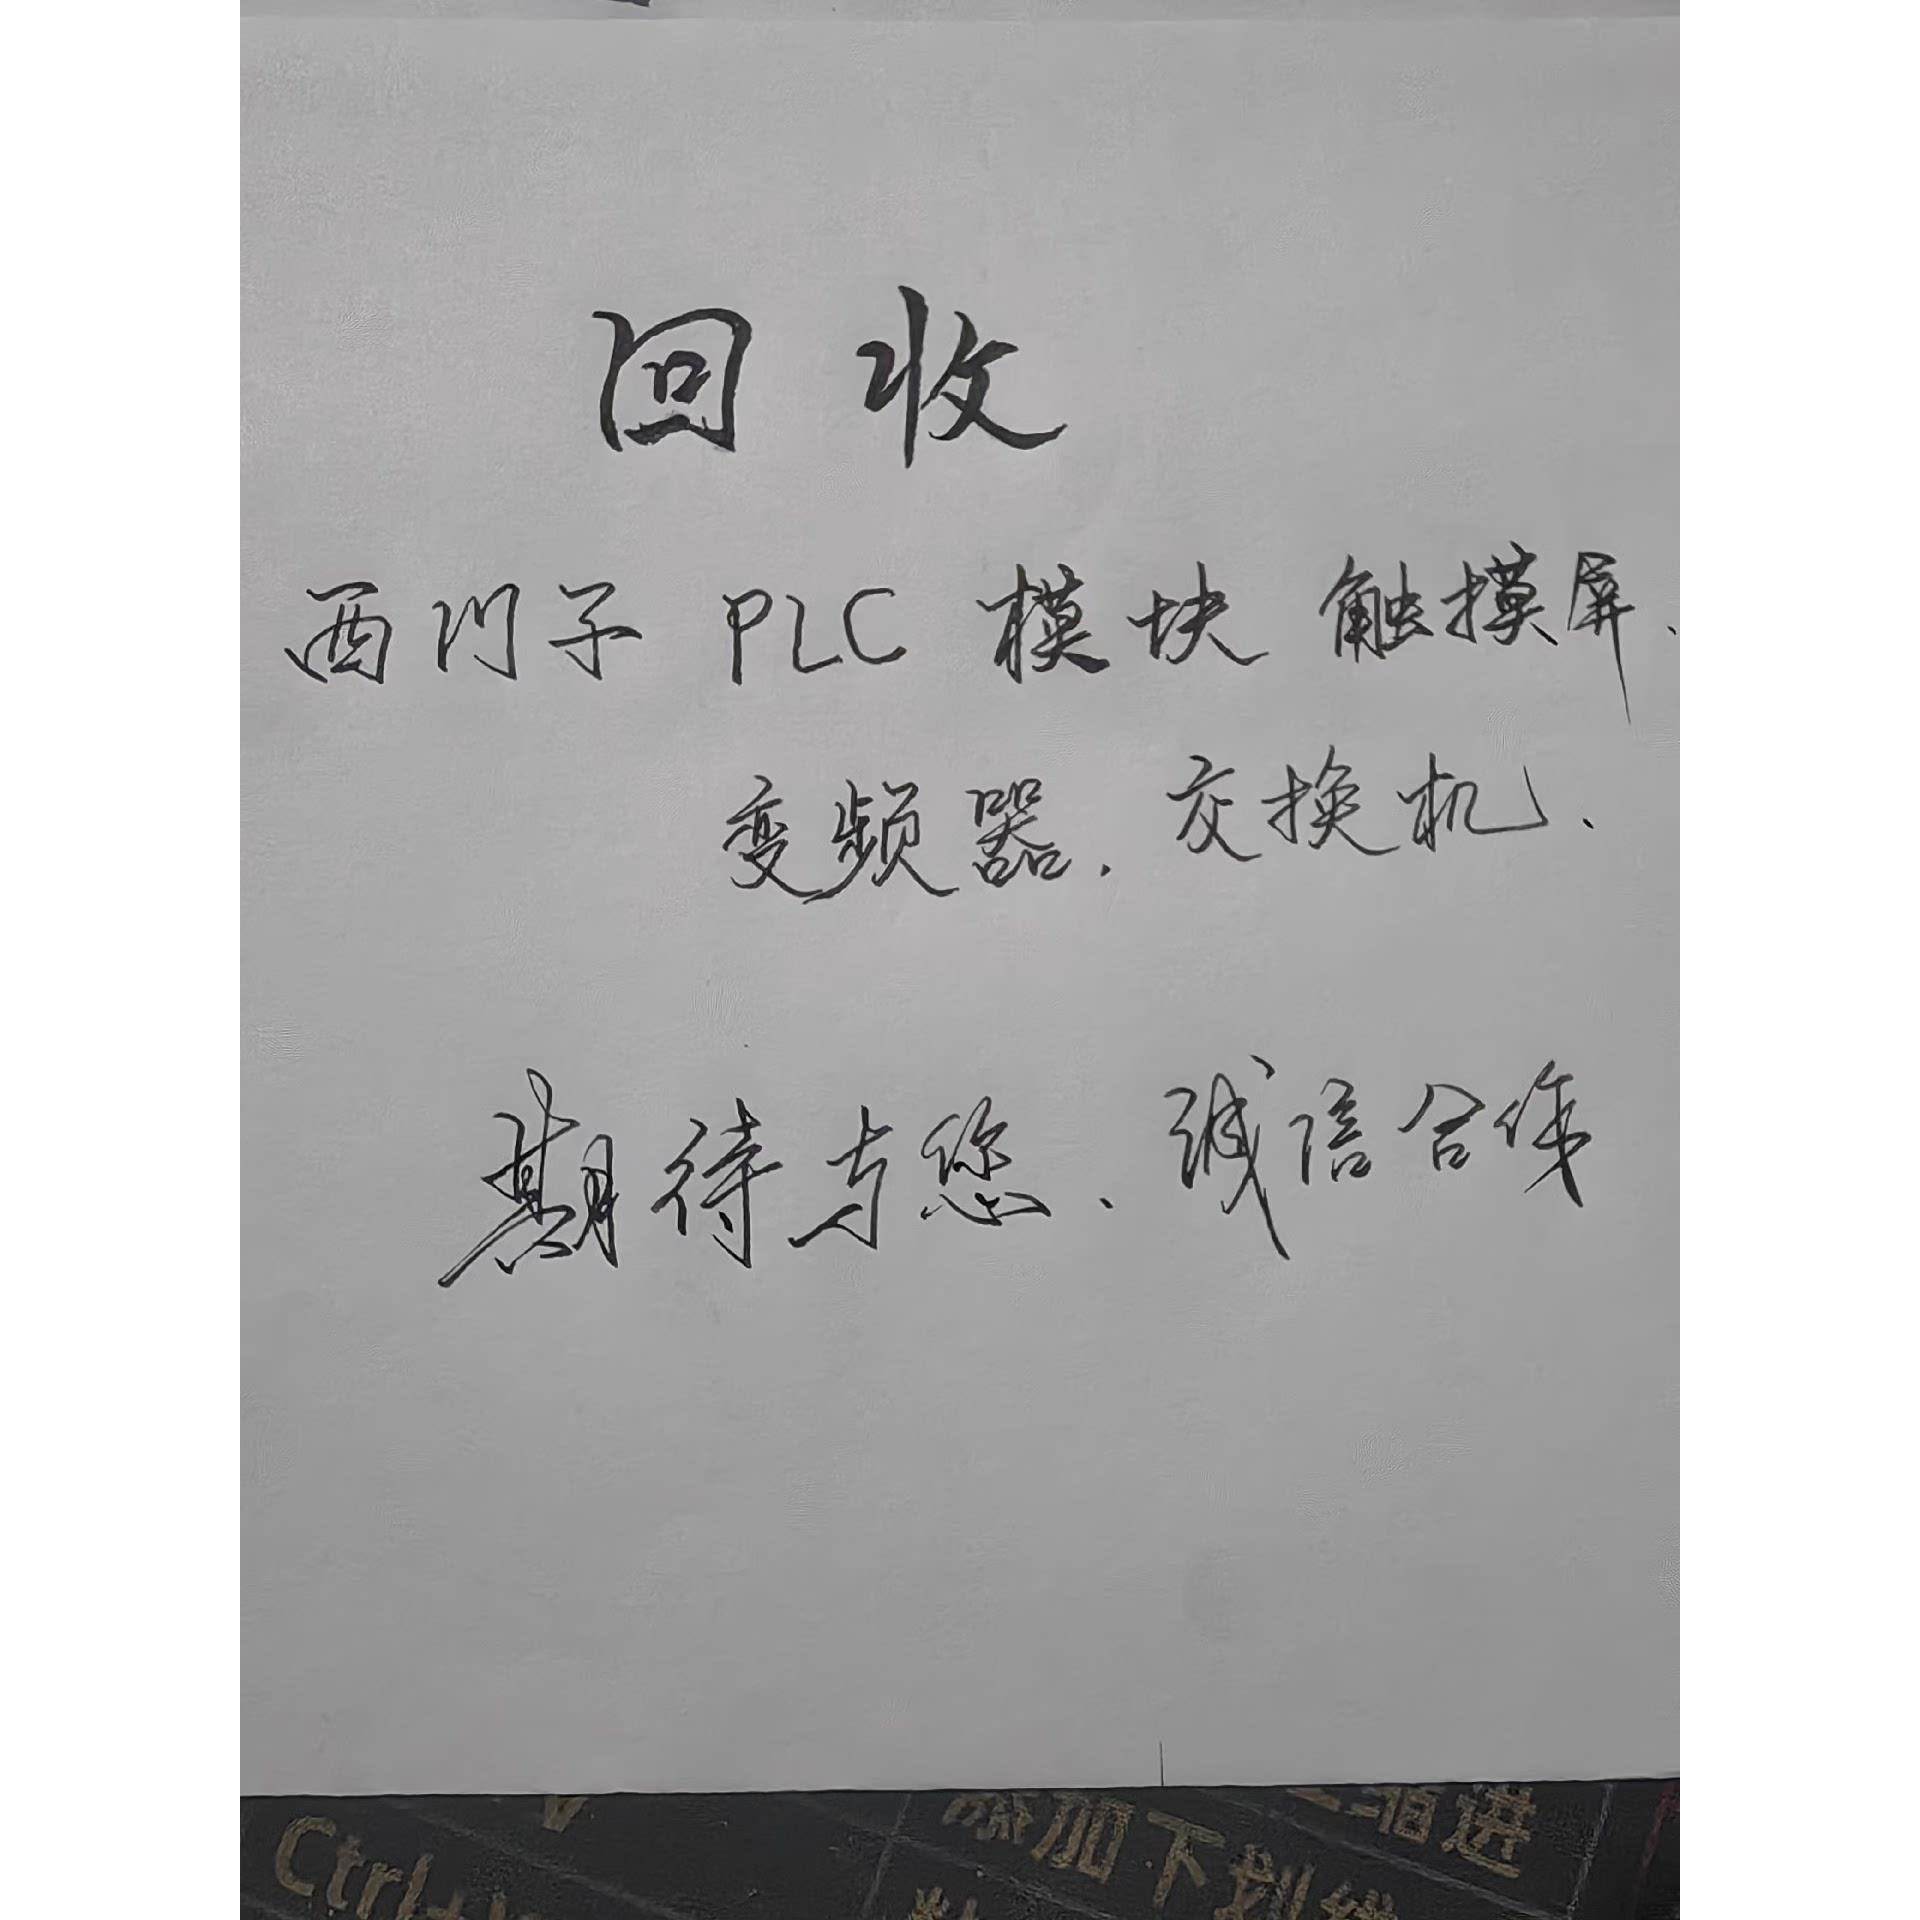 回收
西门子 PLC 模块 触摸屏、
变频器、交换机、
期待与您、诚信合作
添加下划线
缩进
Ctrl+